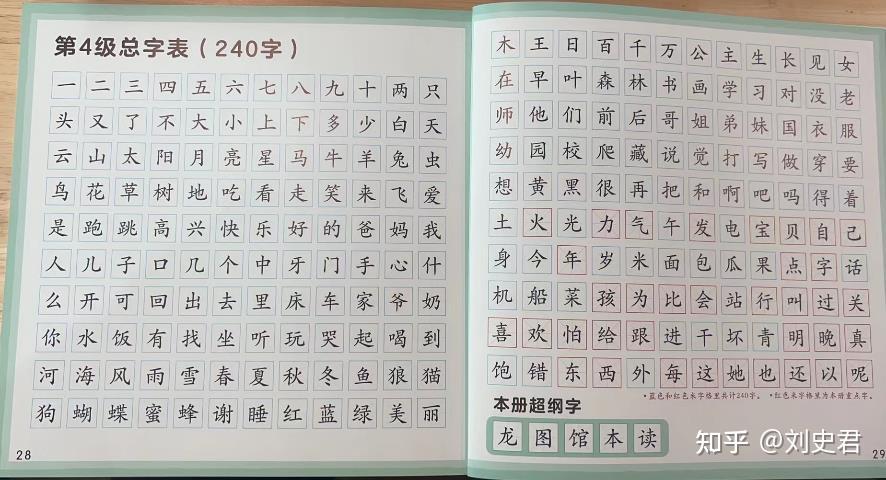 第4级总字表（240字）
一 二 三 四 五 六 七 八 九 十 两 只
头 又 了 不 大 小 上 下 多 少 白 天
云 山 太 阳 月 亮 星 马 牛 羊 兔 虫
鸟 花 草 树 地 吃 看 走 笑 来 飞 爱
是 跑 跳 高 兴 快 乐 好 的 爸 妈 我
人 儿 子 口 几 个 中 牙 门 手 心 什
么 开 可 回 出 去 里 床 车 家 爷 奶
你 水 饭 有 找 坐 听 玩 哭 起 喝 到
河 海 风 雨 雪 春 夏 秋 冬 鱼 狼 猫
狗 蝴 蝶 蜜 蜂 谢 睡 红 蓝 绿 美 丽
28
木 王 日 百 千 万 公 主 生 长 见 女
在 早 叶 森 林 书 画 学 习 对 没 老
师 他 们 前 后 哥 姐 弟 妹 国 衣 服
幼 园 校 爬 藏 说 觉 打 写 做 穿 要
想 黄 黑 很 再 把 和 啊 吧 吗 得 着
土 火 光 力 气 午 发 电 宝 贝 自 己
身 今 年 岁 米 面 包 瓜 果 点 字 话
机 船 菜 孩 为 比 会 站 行 叫 过 关
喜 欢 怕 给 跟 进 干 坏 青 明 晚 真
饱 错 东 西 外 每 这 她 也 还 以 呢
•蓝色和红色米字格里共计240字。 •红色米字格里为本册重点字。
本册超纲字
龙 图 馆 本 读
29
知乎 @刘史君